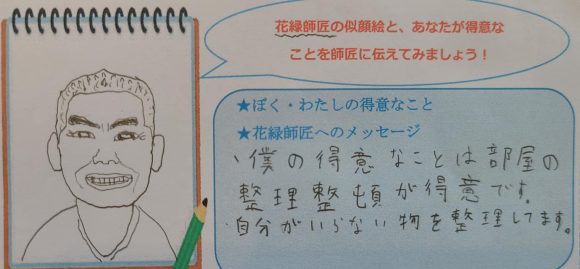 花緑師匠の似顔絵と、あなたが得意な
ことを師匠に伝えてみましょう！
★ぼく・わたしの得意なこと
★花緑師匠へのメッセージ
・僕の得意なことは部屋の
整理整頓が得意です。
・自分がいらない物を整理してます。